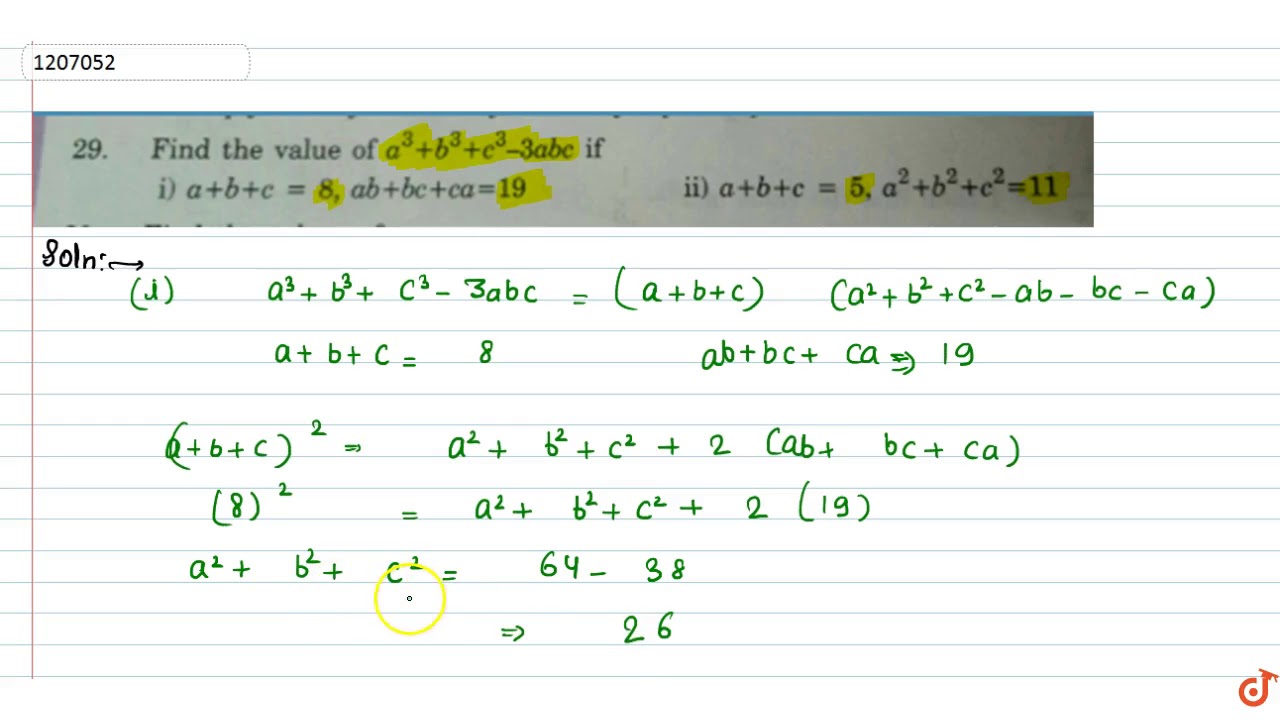 1207052
29. Find the value of a³+b³+c³–3abc if
i) a+b+c = 8, ab+bc+ca=19 ii) a+b+c = 5, a²+b²+c²=11
Soln:→
(i) a³ + b³ + c³ - 3abc = (a+b+c) (a² + b² + c² - ab - bc - ca)
a + b + c = 8 ab + bc + ca => 19
(a + b + c)² => a² + b² + c² + 2 (ab + bc + ca)
(8)² = a² + b² + c² + 2 (19)
a² + b² + c² = 64 - 38
=> 26